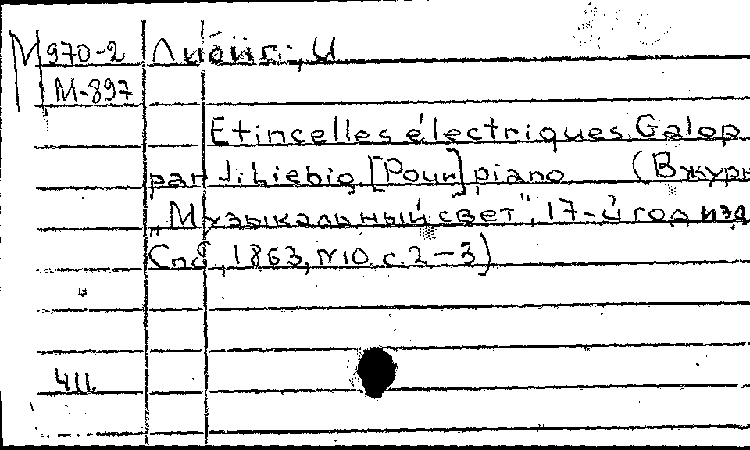 М 970-2 Либиг, И
М-897
Etincelles électriques. Galop
par J. Liebig. [Pour] piano (В журн
„Музыкальный свет", 17-й год изд
Спб, 1863, №10. с. 2-3)